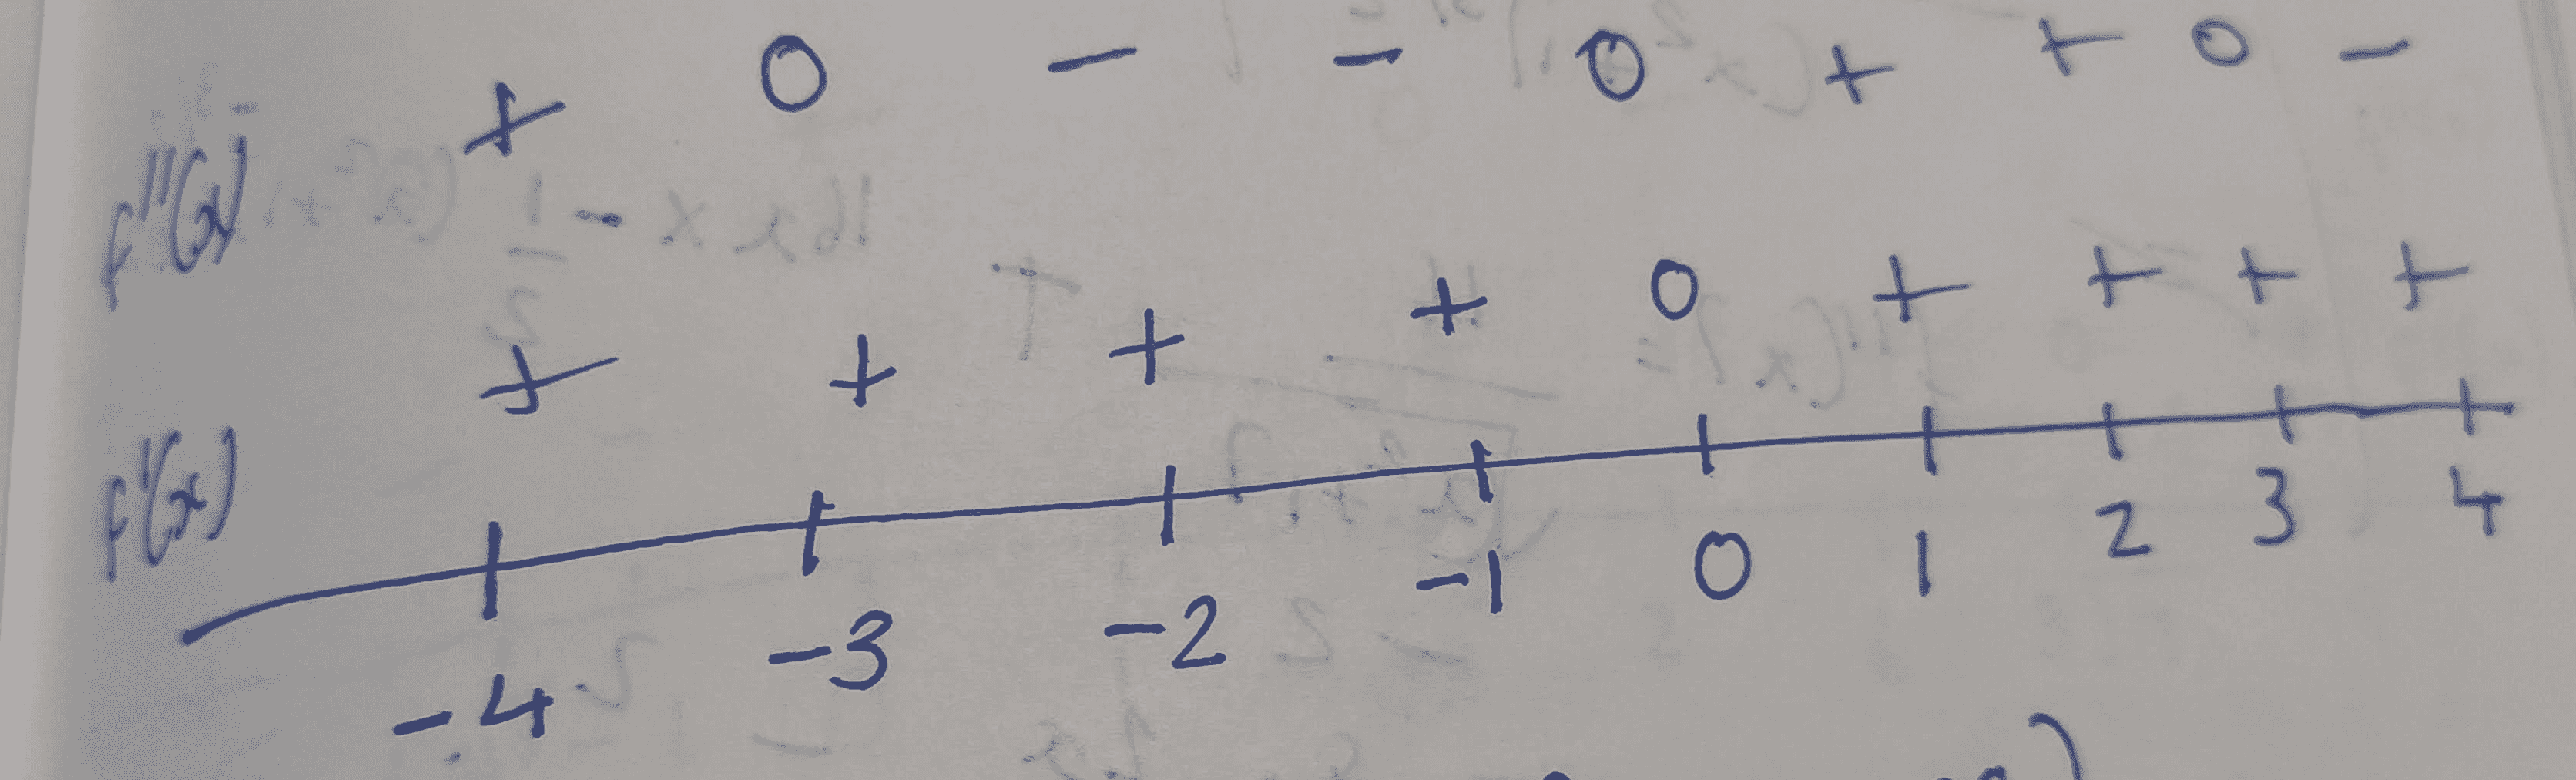 f''(x) + 0 - - 0 + + 0 -
f'(x) + + + + 0 + + + +
-4 -3 -2 -1 0 1 2 3 4